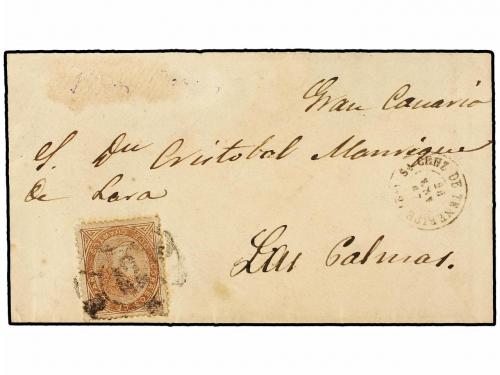 Gran Canaria
S. Dn Cristobal Manrique
de Lara
Las Palmas.
Sta CRUZ DE TENERIFE